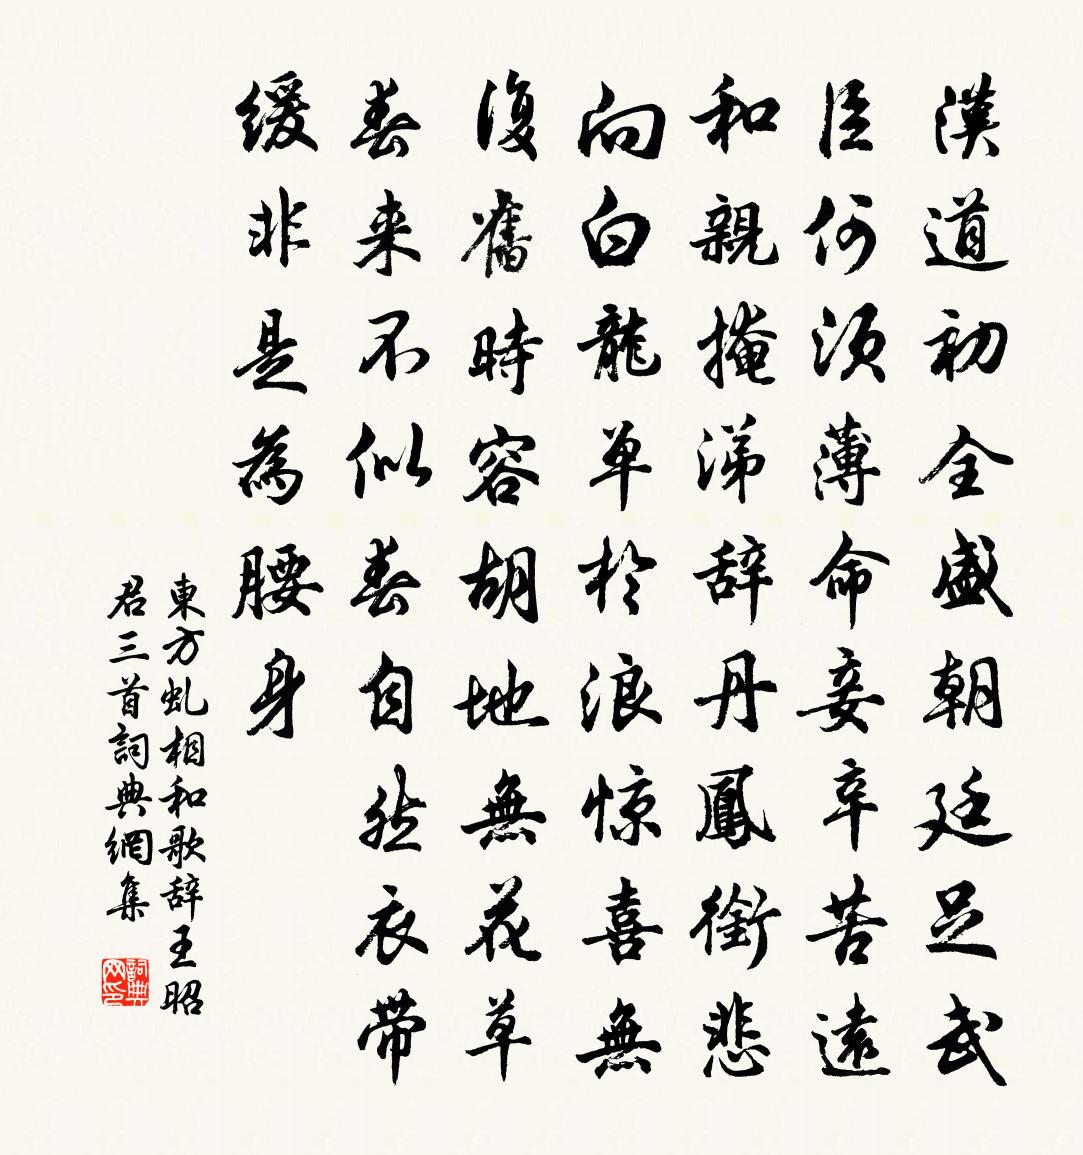 漢道初全盛朝廷足武
臣何須薄命妾辛苦遠
和親掩涕辭丹鳳銜悲
向白龍單於浪惊喜無
復舊時容胡地無花草
春来不似春自然衣帶
緩非是為腰身
東方虬相和歌辭王昭
君三首詞典網集
詞典網印